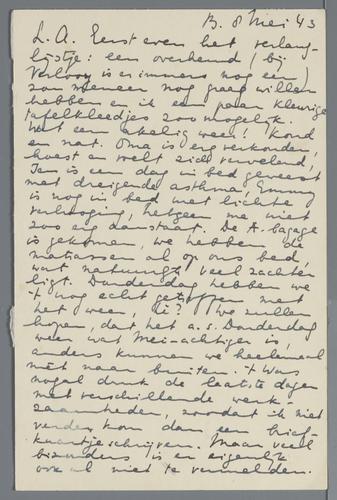 B. 8 Mei '43
L. A. Eerst even het verlang-
lijstje: een overhemd (bij
Verloop is er immers nog een)
zou meneer nog graag willen
hebben en ik een paar kleurige
tafelkleedjes zoo mogelijk.
Wat een akelig weer! Koud
en nat. Oma is erg verkouden,
hoest en voelt zich vervelend,
is een dag in bed geweest
met dreigende asthma, Emmy
is nog in bed met lichte
verhooging, hetgeen me niet
zoo erg aanstaat. De A. bagage
is gekomen, we hebben de
matrassen al op ons bed,
wat natuurlijk veel zachter
ligt. Donderdag hebben we
't nog echt getroffen met
het weer, hè? We zullen
hopen, dat het a.s. Donderdag
weer wat Mei-achtiger is,
anders kunnen we heelemaal
niet naar buiten. 't Was
nogal druk de laatste dagen
met verschillende werk-
zaamheden, zoodat ik niet
verder kom dan een brief-
kaartje schrijven. Maar veel
bizonders is er eigenlijk
ook al niet te vermelden.